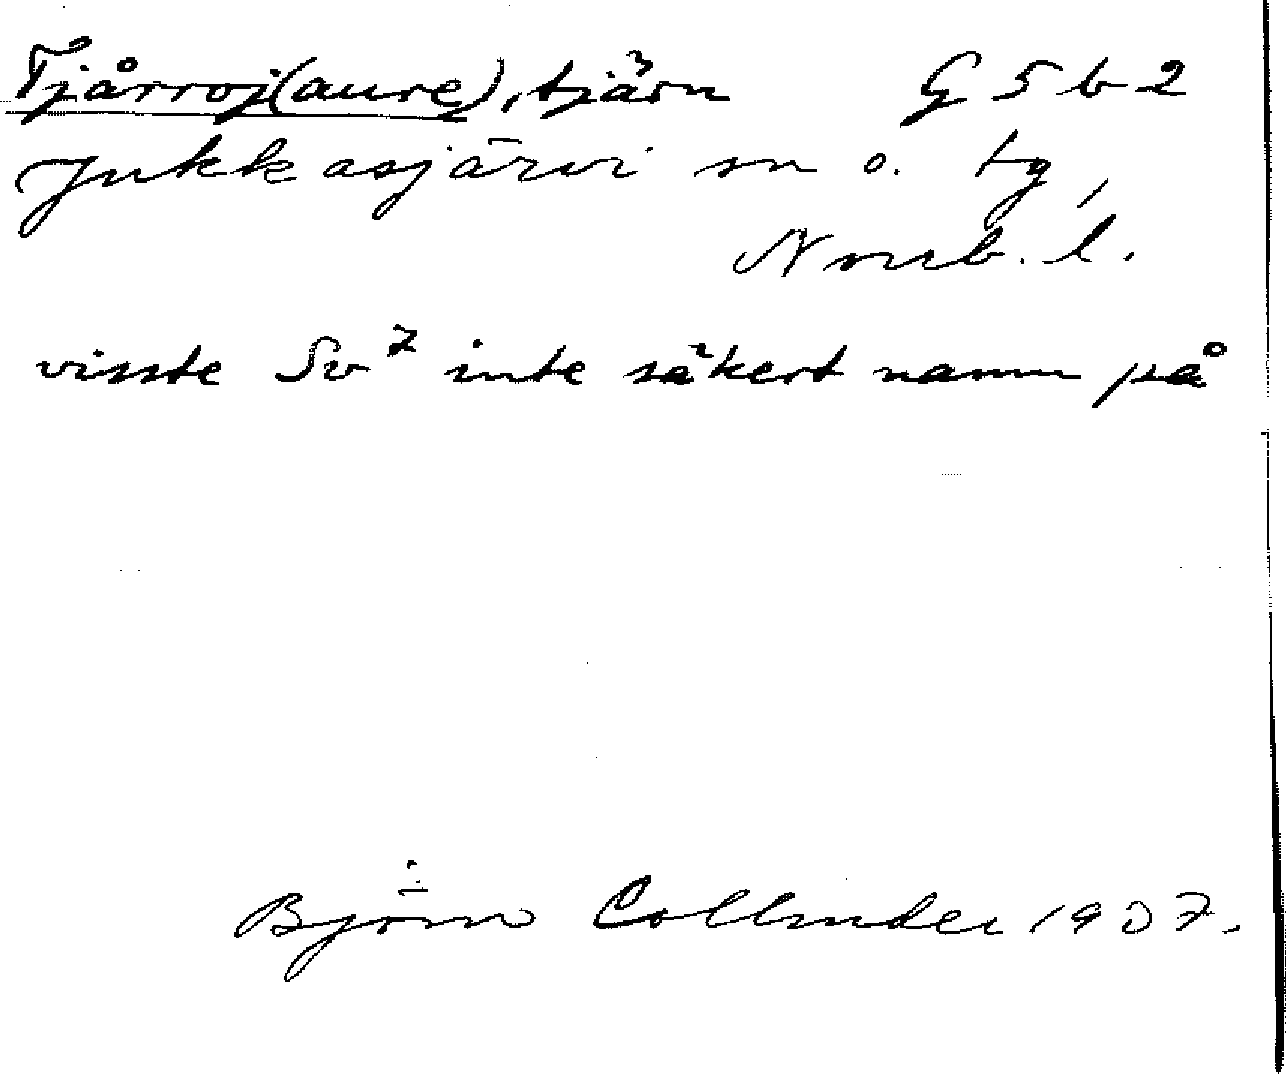 Tjårroj(aure), tjärn G 5 b 2
Jukkasjärvi sn o. tg,
Norrb. l.
visste Sv⁷ inte säkert namn på
Björn Collinder 1937.